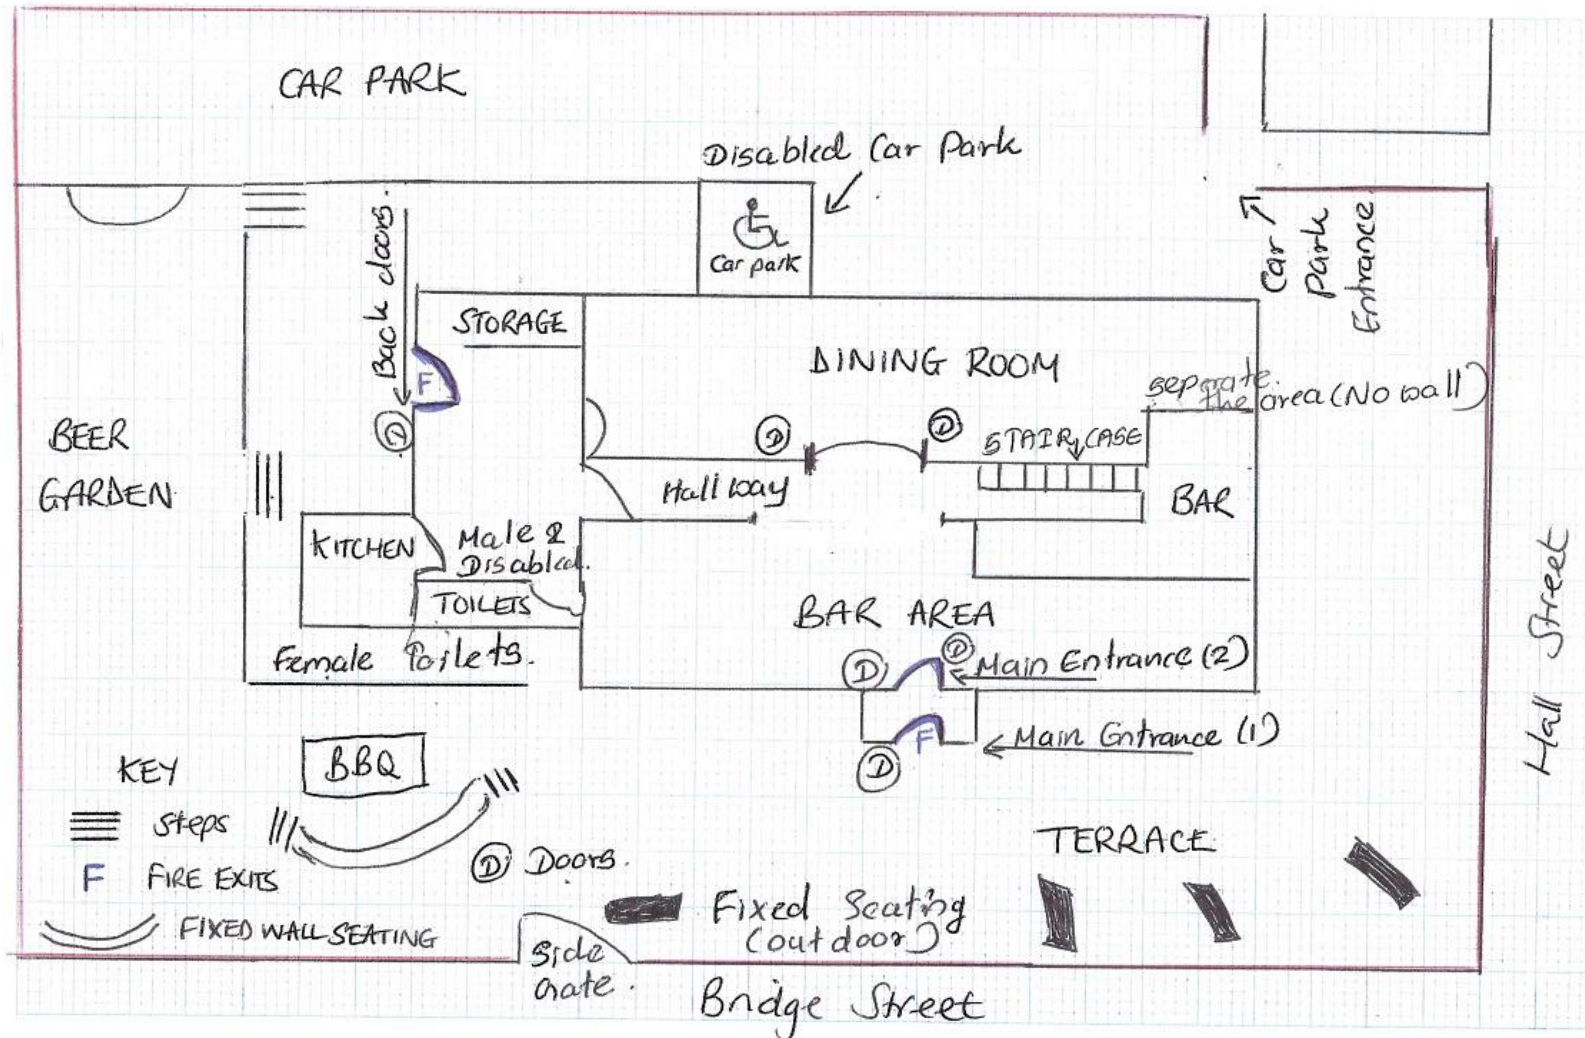 CAR PARK
Disabled Car Park
Car park
Car
Park
Entrance
Back doors.
STORAGE
F
D
DINING ROOM
seperate.
the area (No wall)
D
D
STAIR CASE
Hallway
BAR
BEER
GARDEN
KITCHEN
Male &
Disabled.
TOILETS
Female Toilets.
BAR AREA
D
D
Main Entrance (2)
F
D
Main Entrance (1)
BBQ
KEY
Steps
F FIRE EXITS
FIXED WALL SEATING
D Doors.
Fixed Seating
(outdoor)
TERRACE
Side
Gate.
Bridge Street
Hall Street